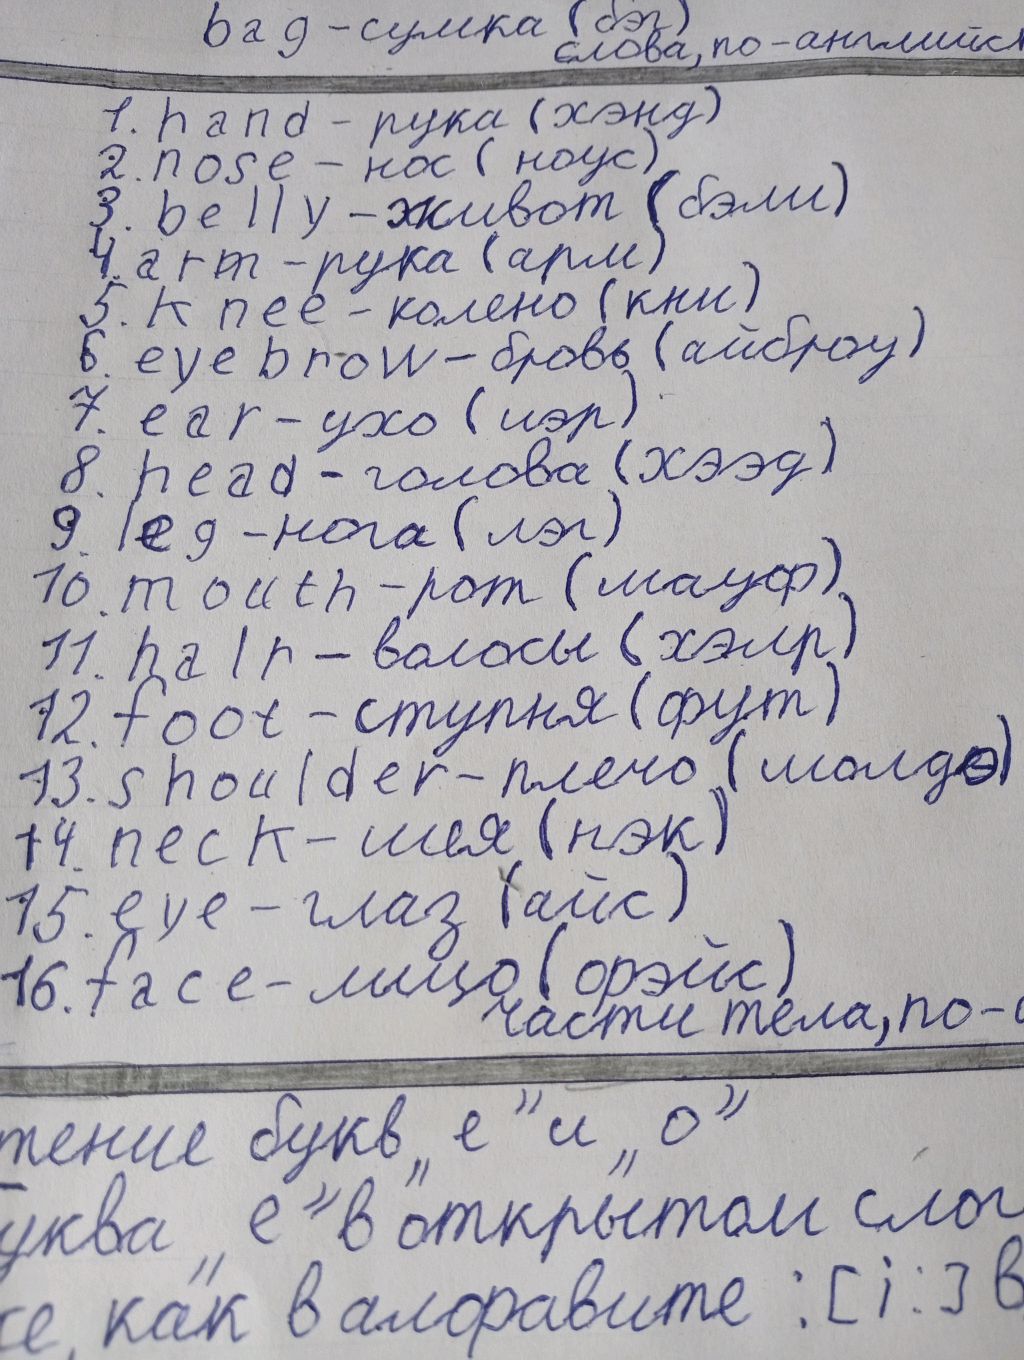 bag-сумка (бэг)
слова, по-английск
1. hand - рука (хэнд)
2. nose - нос (ноус)
3. belly - живот (бэли)
4. arm - рука (арм)
5. knee - колено (кни)
6. eyebrow - бровь (айброу)
7. ear - ухо (иэр)
8. head - голова (хээд)
9. leg - нога (лэг)
10. mouth - рот (мауф)
11. hair - волосы (хэир)
12. foot - ступня (фут)
13. shoulder - плечо (шолдэ)
14. neck - шея (нэк)
15. eye - глаз (айс)
16. face - лицо (фэйс)
части тела, по-а
тение букв „е” и „о”
уква „е” в открытом слог
се, как в алфавите: [i:] в